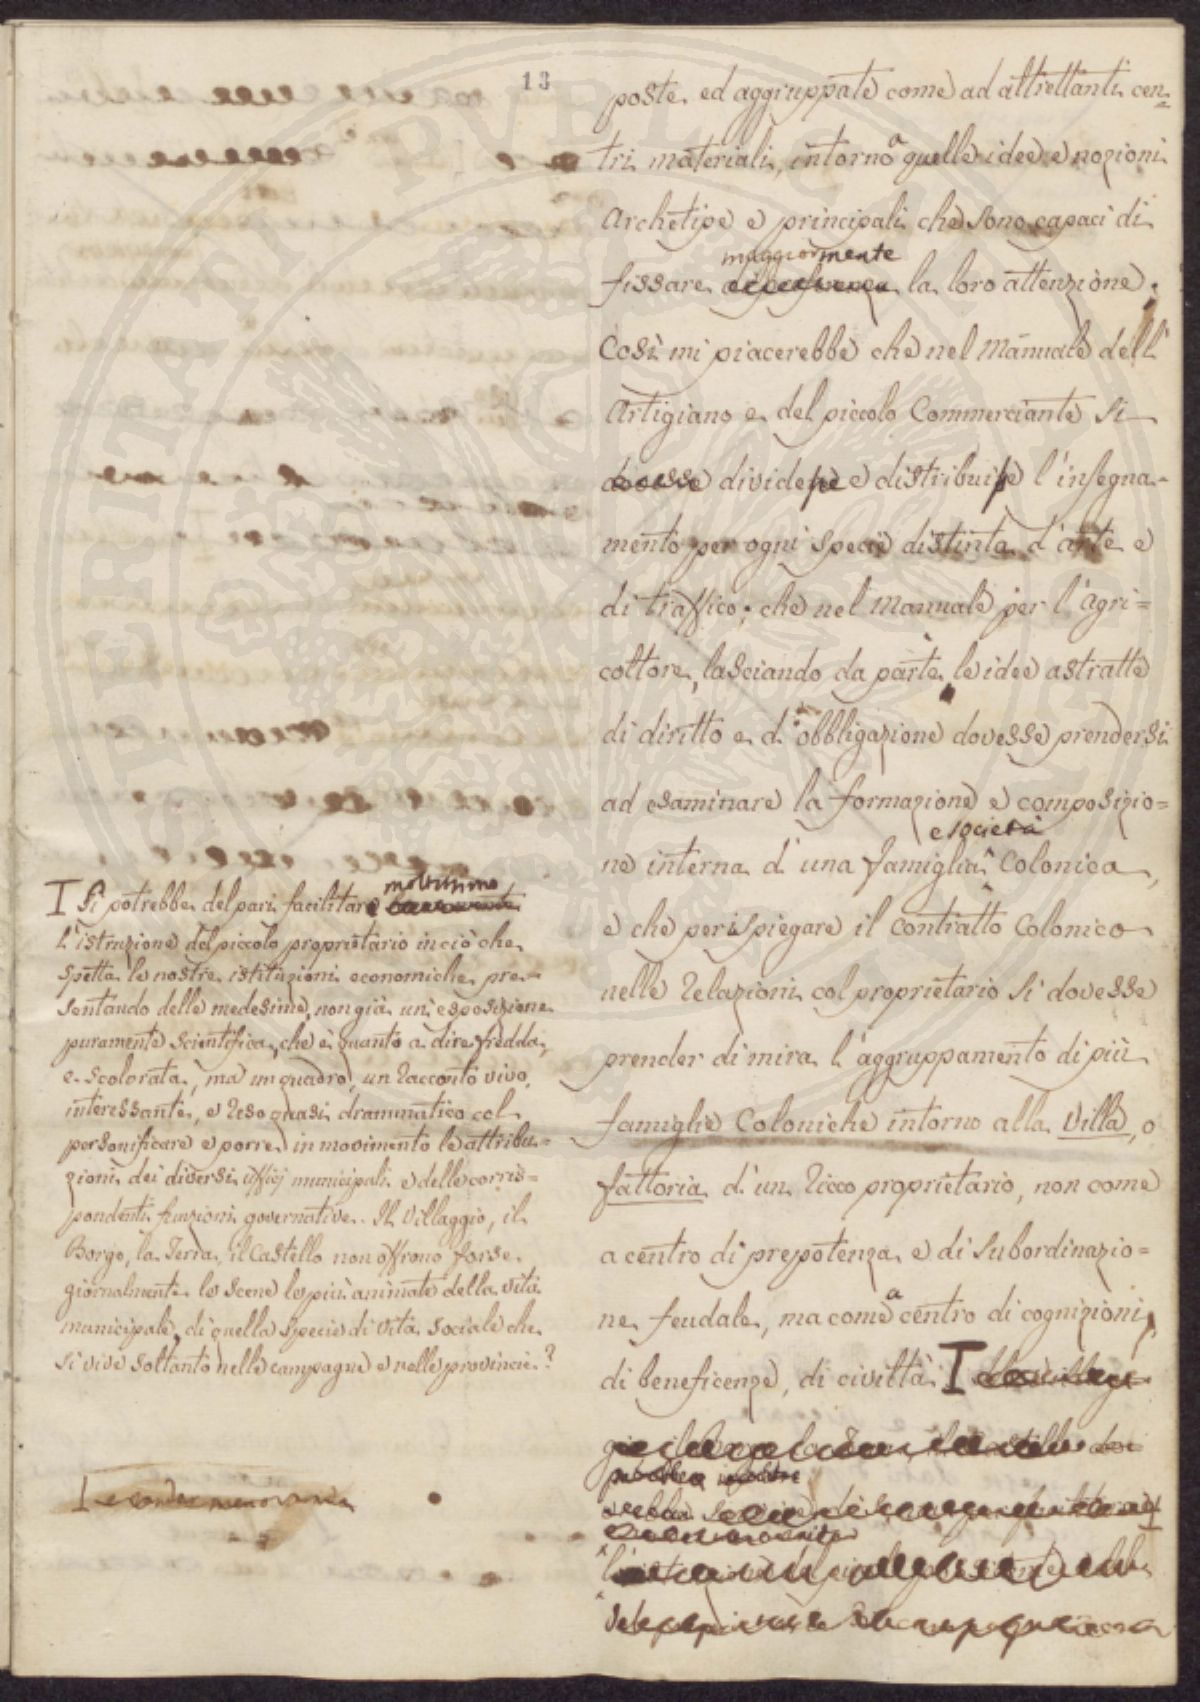 13
poste, ed aggruppate come ad altrettanti cen=
tri materiali, intorno a quelle idee e nozioni
Archetipe e principali che sono capaci di
maggiormente
fissare la loro attenzione.
Così mi piacerebbe che nel Manuale dell'
Artigiano e del piccolo Commerciante si
dovesse dividere e distribuire l'insegna-
mento per ogni specie distinta d'arte e
di traffico; che nel Manuale per l'Agri=
coltore, lasciando da parte le idee astratte
di diritto e di obbligazione dovesse prendersi
ad esaminare la formazione e composizio=
e società
ne interna d'una famiglia Colonica,
e che per ispiegare il contratto Colonico
nelle relazioni col proprietario si dovesse
prender di mira l'aggruppamento di più
famiglie Coloniche intorno alla Villa, o
fattoria d'un ricco proprietario, non come
a centro di prepotenza e di subordinazio=
ne feudale, ma come a centro di cognizioni,
di beneficenze, di civiltà. I
I Si potrebbe del pari facilitare moltissimo
l'istruzione del piccolo proprietario in ciò che
spetta le nostre istituzioni economiche pre=
sentando delle medesime, non già un'esposizione
puramente scientifica, che è quanto a dire fredda,
e scolorata, ma un quadro, un racconto vivo,
interessante, e reso quasi drammatico col
personificare e porre in movimento le attribu=
zioni dei diversi uffici municipali e delle corris=
pondenti funzioni governative. Il Villaggio, il
Borgo, la Terra, il Castello non offrono forse
giornalmente le scene le più animate della vita
municipale, di quella specie di vita sociale che
si vive soltanto nelle campagne e nelle provincie?